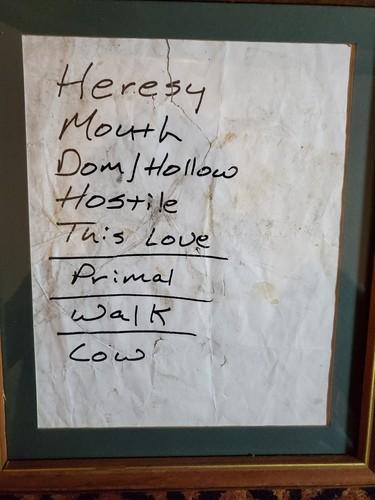 Heresy
Mouth
Dom/Hollow
Hostile
This Love
Primal
Walk
Cow